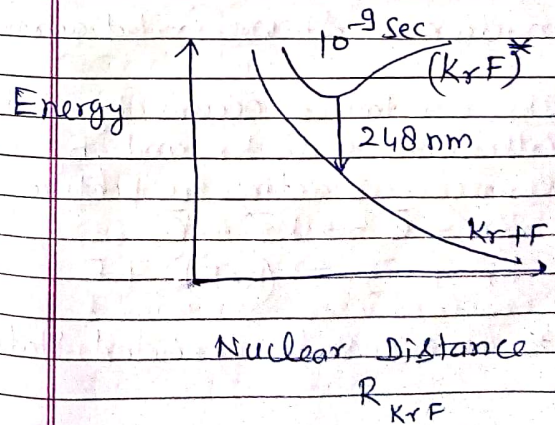 10⁻⁹ Sec
(KrF)*
Energy
248 nm
Kr+F
Nuclear Distance
R KrF